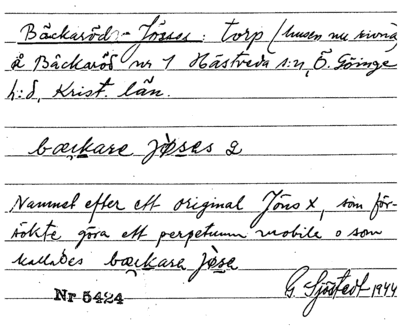 Bäckaröd - Jösses: torp (husen nu rivna)
å Bäckaröd nr 1 Hästveda s:n, Ö. Göinge
h:d, Krist. län.
bœckare jòses 2
Namnet efter ett original Jöns x, som för-
sökte göra ett perpetuum mobile o som
kallades bœckare jòse
Nr 5424
G. Sjöstedt 1944